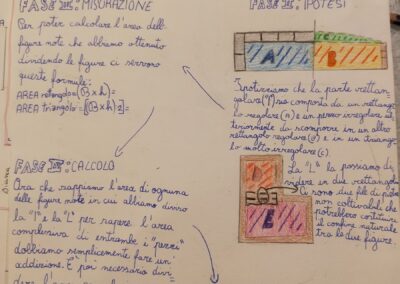 FASE II: MISURAZIONE
Per poter calcolare l'area delle
figure note che abbiamo ottenuto
dividendo le figure ci servono
queste formule:
AREA rettangolo=(B×h)=
AREA triangolo=(B×h):2=
FASE IV: CALCOLO
Ora che sappiamo l'area di ognuna
delle figure note in cui abbiamo diviso
la "I" e la "L" per sapere l'area
complessiva di entrambe i "pezzi"
dobbiamo semplicemente fare un'
addizione. È poi necessario divi-
dere l'area
FASE II: IPOTESI
A
B
C
Ipotizziamo che la parte rettan-
golare sia composta da un rettango-
lo regolare (A) e un pezzo irregolare ul-
teriormente da scomporre in un altro
rettangolo regolare (B) e in un triango-
lo molto irregolare (C).
D
E
La "L" la possiamo di-
videre in due rettangoli
Ci sono due bli di pale
non coltivabili che
potrebbero costituire
il confine naturale
tra le due figure.